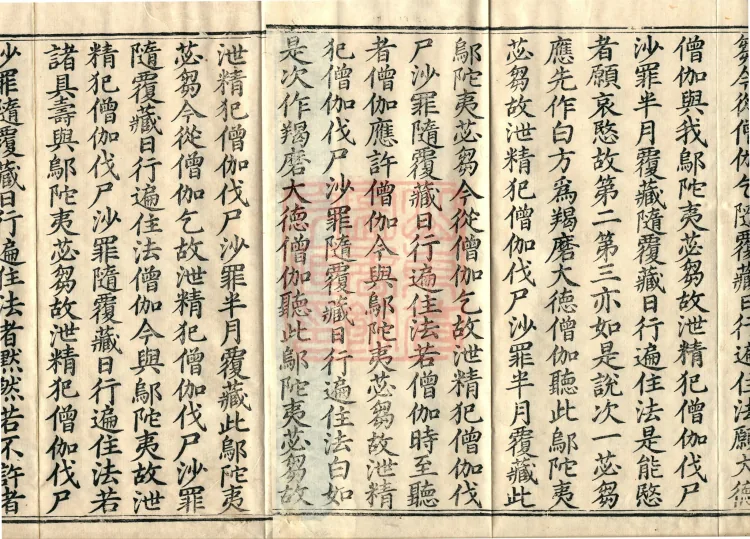 芻今從僧伽覆藏日行遍住法願大德
僧伽與我鄔陀夷苾芻故泄精犯僧伽伐尸
沙罪半月覆藏隨覆藏日行遍住法是能愍
者願哀愍故第二第三亦如是說次一苾芻
應先作白方爲羯磨大德僧伽聽此鄔陀夷
苾芻故泄精犯僧伽伐尸沙罪半月覆藏此
鄔陀夷苾芻今從僧伽乞故泄精犯僧伽伐
尸沙罪隨覆藏日行遍住法若僧伽時至聽
者僧伽應許僧伽今與鄔陀夷苾芻故泄精
犯僧伽伐尸沙罪隨覆藏日行遍住法白如
是次作羯磨大德僧伽聽此鄔陀夷苾芻故
泄精犯僧伽伐尸沙罪半月覆藏此鄔陀夷
苾芻今從僧伽乞故泄精犯僧伽伐尸沙罪
隨覆藏日行遍住法僧伽今與鄔陀夷故泄
精犯僧伽伐尸沙罪隨覆藏日行遍住法若
諸具壽與鄔陀夷苾芻故泄精犯僧伽伐尸
沙罪隨覆藏日行遍住法者黙然若不許者